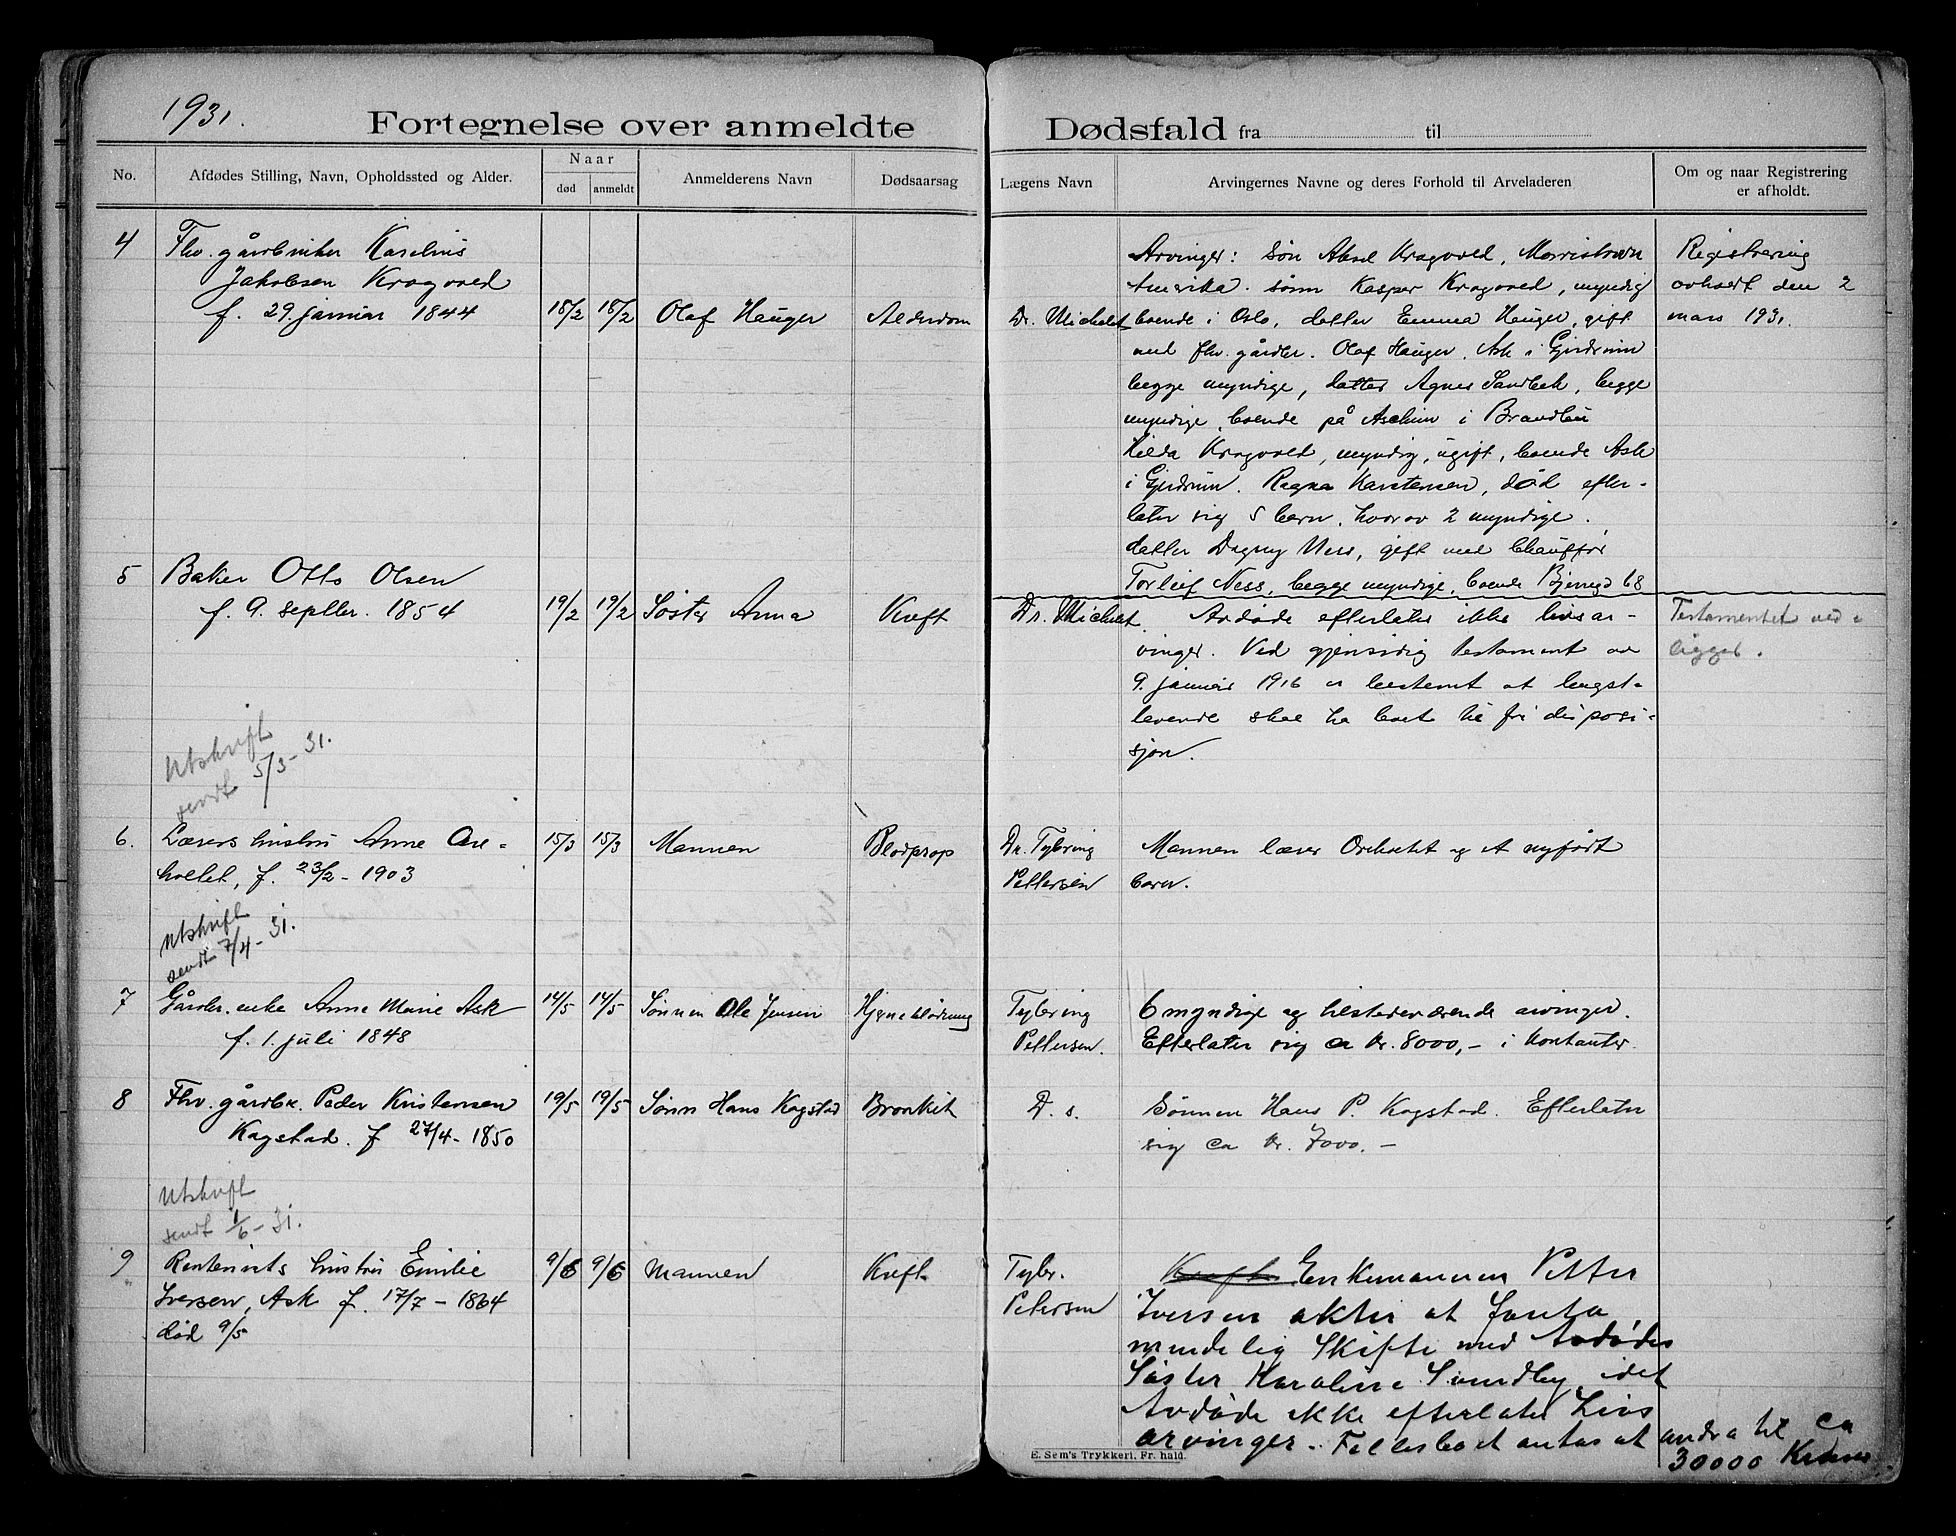 1931.
Fortegnelse over anmeldte Dødsfald fra til
No.
Afdødes Stilling, Navn, Opholdssted og Alder.
Naar
død
anmeldt
Anmelderens Navn
Dødsaarsag
Lægens Navn
Arvingernes Navne og deres Forhold til Arveladeren
Om og naar Registrering
er afholdt.
4
Fhv. gårdbruker Karelius
Jakobsen Kragvold
f. 29. januar 1844
18/2
18/2
Olaf Hauger
Alderdom
Dr. Michelet
Arvinger: søn Aksel Kragvold, Morristown
Amerika. sønn Kasper Kragvold, myndig
boende i Oslo, datter Emma Hauger, gift
med fhv. gårdbr. Olaf Hauger, Ask i Gjerdrum
begge myndige, datter Agnes Sandbek, begge
myndige, boende på Aschim i Brandbu
Hilda Kragvold, myndig, ugift, boende Ask
i Gjerdrum. Ragna Karstensen, død efter-
later sig 5 barn, hvorav 2 myndige.
datter Dagny Ness, gift med Chauffør
Torleif Ness, begge myndige, boende 68
Registrering
avholt den 2
mars 1931.
5
Baker Otto Olsen
f. 9. septbr. 1854
19/2
19/2
Søster Anna
Kreft
Dr. Michelet
Avdøde efterlater ikke livsar-
vinger. Ved gjensidig testament av
9. januar 1916 er bestemt at lengst-
levende skal ha boet til fri disposi-
sjon.
Testamentet ved-
ligger.
Utskrift
sendt 5/3-31.
6.
Lærers hustru Anne Ore-
holtet, f. 23/2-1903
15/3
15/3
Mannen
Blodprop
Dr. Tybring
Pettersen
Mannen lærer Oreholtet og et nyfødt
barn.
Utskrift
sendt 7/4-31.
7
Gårdbr. enke Anne Marie Ask
f. 1. juli 1848
14/5
14/5
Sønnen Ole Jensen
Hjerneblødning
Tybring
Pettersen.
6 myndige og tilstedeværende arvinger.
Efterlater sig ca kr. 8000,- i kontanter.
8
Fhv. gårdbr. Peder Kristensen
Kogstad. f 27/4-1850
19/5
19/5
Sønn Hans Kogstad
Bronkit
D. s.
Sønnen Hans P. Kogstad. Efterlater
sig ca kr. 7000.-
Utskrift
sendt 1/6-31.
9
Rentenists hustru Emilie
Iversen, Ask f. 17/7-1864
død 9/5
9/6
9/6
Mannen
Kreft
Tybr.
Petersen
Kreft Enkemannen Petter
Iversen akter at foreta
mindelig Skifte med Avdødes
Søster Karoline Sundby idet
Avdøde ikke efterlater Livs
arvinger. Fellesboet antas at andra til ca
30000 Kroner.
E. Sem's Trykkeri, Fr. hald.